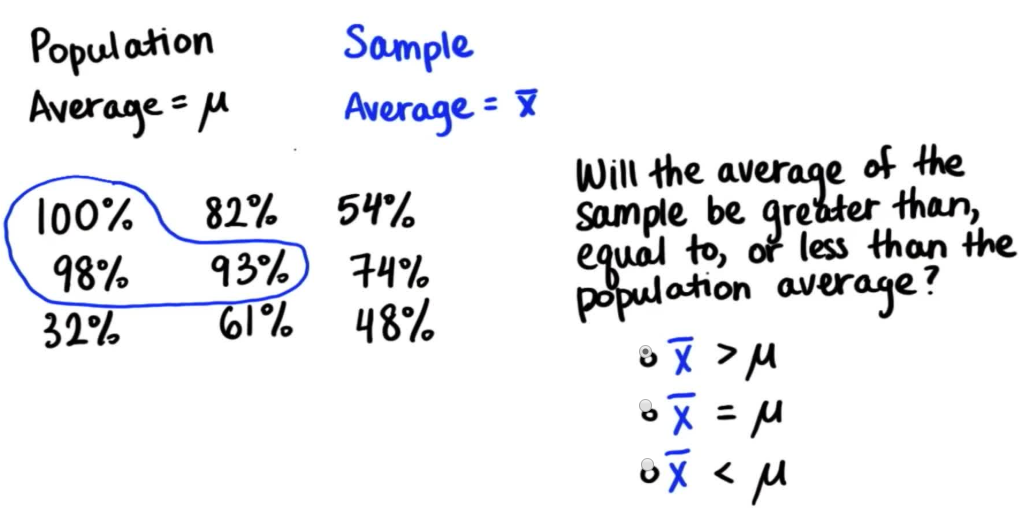 Population Sample
Average = μ Average = x̄
100% 82% 54%
98% 93% 74%
32% 61% 48%
Will the average of the
sample be greater than,
equal to, or less than the
population average?
x̄ > μ
x̄ = μ
x̄ < μ